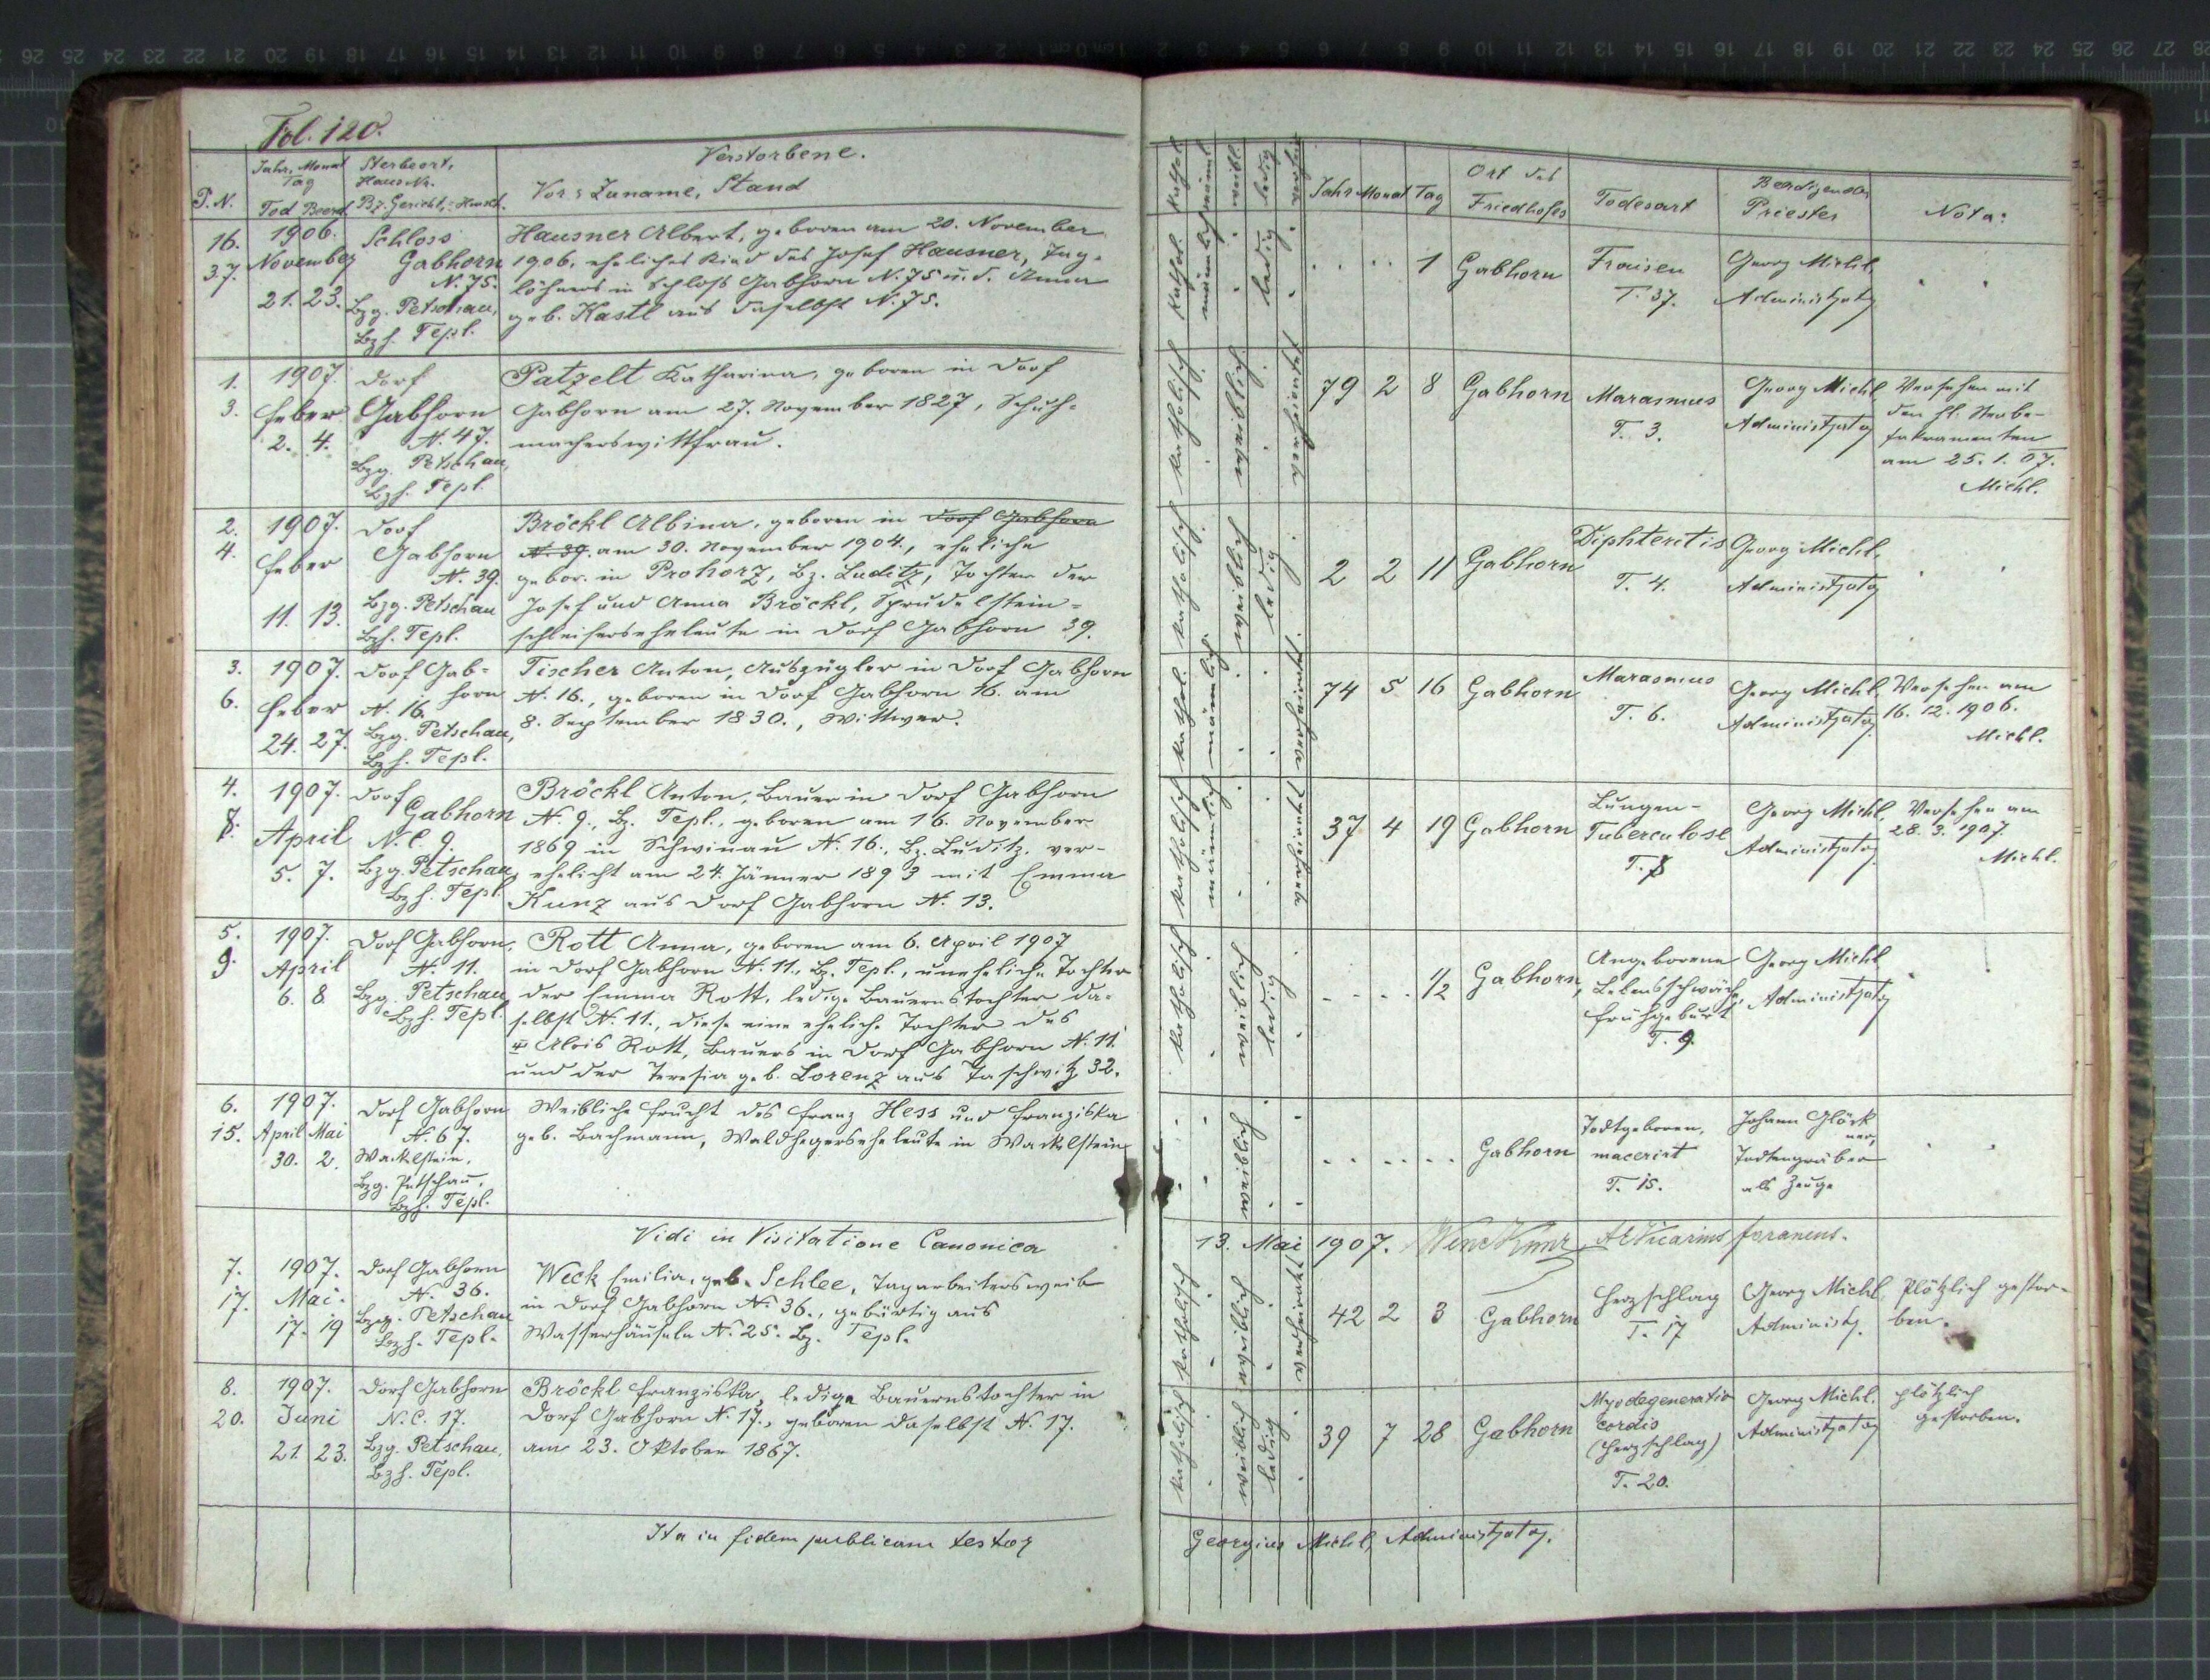 Fol. 120.
P. N.
Jahr, Monat
Tag
Tod Beerd.
Sterbeort,
Haus Nr.
Bz. Gericht,
Verstorbene.
Vor- Zuname, Stand
16.
37.
1906.
November
21. 23.
Schloss
Gabhorn
N. 75.
Bzg. Petschau,
Bzh. Tepl.
Hausner Albert, geboren am 20. November
1906, eheliches Kind des Josef Hausner, Tag-
löhners in Schloss Gabhorn N. 75 u. d. Anna
geb. Kastl aus daselbst N. 75.
1.
3.
1907.
Feber
2. 4.
Dorf
Gabhorn
N. 47.
Bzg. Petschau,
Bzh. Tepl.
Patzelt Katharina, geboren in Dorf
Gabhorn am 27. November 1827, Schuh-
macherswittfrau.
2.
4.
1907.
Feber
11. 13.
Dorf
Gabhorn
N. 39.
Bzg. Petschau
Bzh. Tepl.
Bröckl Albina, geboren in Dorf Gabhorn
N. 39. am 30. November 1904, eheliche
gebor. in Prohorz, Bz. Luditz, Tochter der
Josef und Anna Bröckl, Sprudelstein-
schleiferseheleute in Dorf Gabhorn 39.
3.
6.
1907.
Feber
24. 27.
Dorf Gab-
horn
N. 16.
Bzg. Petschau,
Bzh. Tepl.
Tischer Anton, Auszügler in Dorf Gabhorn
N. 16., geboren in Dorf Gabhorn 16. am
8. September 1830., Wittwer.
4.
8.
1907.
April
5. 7.
Dorf
Gabhorn
N.C. 9.
Bzg. Petschau,
Bzh. Tepl.
Bröckl Anton, Bauer in Dorf Gabhorn
N. 9., Bz. Tepl., geboren am 16. November
1869 in Schwinau N. 16., Bz. Luditz. ver-
ehelicht am 24. Jänner 1893 mit Emma
Kunz aus Dorf Gabhorn N. 13.
5.
9.
1907.
April
6. 8
Dorf Gabhorn,
N. 11.
Bzg. Petschau,
Bzh. Tepl.
Rott Anna, geboren am 6. April 1907
in Dorf Gabhorn N. 11., Bz. Tepl., uneheliche Tochter
der Emma Rott, ledige Bauernstochter da-
selbst N. 11., diese eine eheliche Tochter des
Alois Rott, Bauers in Dorf Gabhorn N. 11.
und der Teresia geb. Lorenz aus Taschwitz 32.
6.
15.
1907.
April Mai
30. 2.
Dorf Gabhorn
N. 67.
Wacklstein,
Bzg. Petschau,
Bzh. Tepl.
Weibliche Frucht des Franz Hess und Franziska
geb. Bachmann, Waldhegerseheleute in Wacklstein
Vidi in Visitatione Canonica
7.
17.
1907.
Mai.
17. 19
Dorf Gabhorn
N. 36.
Bzg. Petschau
Bzh. Tepl.
Weck Emilia, geb. Schlee, Tagarbeitersweib
in Dorf Gabhorn N. 36., gebürtig aus
Wasserhäuseln N. 25. Bz. Tepl.
8.
20.
1907.
Juni
21. 23.
Dorf Gabhorn
N.C. 17.
Bzg. Petschau.
Bzh. Tepl.
Bröckl Franziska, ledige Bauernstochter in
Dorf Gabhorn N. 17., geboren daselbst N. 17.
am 23. Oktober 1867.
Ita in fidem publicam testor
kathol. männl. weibl. ledig
Jahr Monat Tag
Ort des
Friedhofes
Todesart
Beerdigender
Priester
Nota:
kathol. männlich ledig
1 Gabhorn
Fraisen
T. 37.
Georg Michl,
Administrator
katholisch weiblich verheiratet
79 2 8 Gabhorn
Marasmus
T. 3.
Georg Michl,
Administrator
Versehen mit
den hl. Sterbe-
sakramenten
am 25. 1. 07.
Michl.
katholisch weiblich ledig
2 2 11 Gabhorn
Diphteritis
T. 4.
Georg Michl.
Administrator
kathol. männlich verheiratet.
74 5 16 Gabhorn
Marasmus
T. 6.
Georg Michl.
Administrator
Versehen am
16. 12. 1906.
Michl.
katholisch männlich verheiratet
37 4 19 Gabhorn
Lungen-
Tuberculose
T. 8
Georg Michl,
Administrator
Versehen am
28. 3. 1907.
Michl.
katholisch weiblich ledig
1/2 Gabhorn,
Angeborene
Lebensschwäche,
Frühgeburt
T. 9.
Georg Michl
Administrator
weiblich
Gabhorn
Todtgeboren,
macerirt
T. 15.
Johann Glöck
ner,
Todtengräber
als Zeuge
13. Mai 1907. Wenc Kunz, Vicarius foraneus.
katholisch weiblich verheiratet
42 2 3 Gabhorn
Herzschlag
T. 17
Georg Michl
Administr.
Plötzlich gestor-
ben.
katholisch weiblich ledig
39 7 28 Gabhorn
Myodegeneratio
cordis
(Herzschlag)
T. 20.
Georg Michl.
Administrator
plötzlich
gestorben.
Georgius Michl, Administrator.